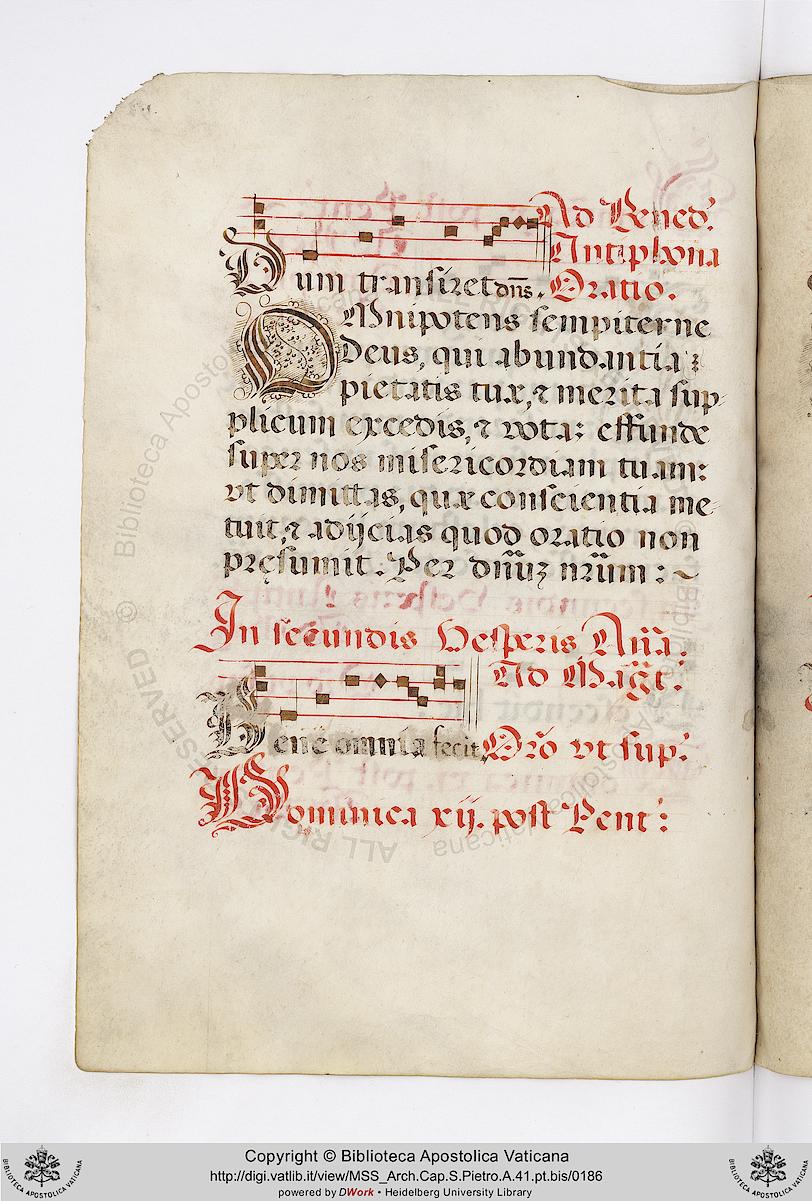 Ad Bened.
Antiphona
Dum transiret dn̄s. Oratio.
OMnipotens sempiterne
Deus, qui abundantia
pietatis tuæ, & merita sup-
plicum excedis, & vota: effunde
super nos misericordiam tuam:
vt dimittas, quæ conscientia me-
tuit, & adijcias quod oratio non
pręsumit. Per dn̄uȝ nr̄um:
In secundis Vesperis An̄a.
Ad Mag.t
Bene omnia fecit, Or̄o vt sup.
Dominica xij. post Pent:
Copyright © Biblioteca Apostolica Vaticana
http://digi.vatlib.it/view/MSS_Arch.Cap.S.Pietro.A.41.pt.bis/0186
powered by DWork • Heidelberg University Library
BIBLIOTECA APOSTOLICA VATICANA
BIBLIOTECA APOSTOLICA VATICANA